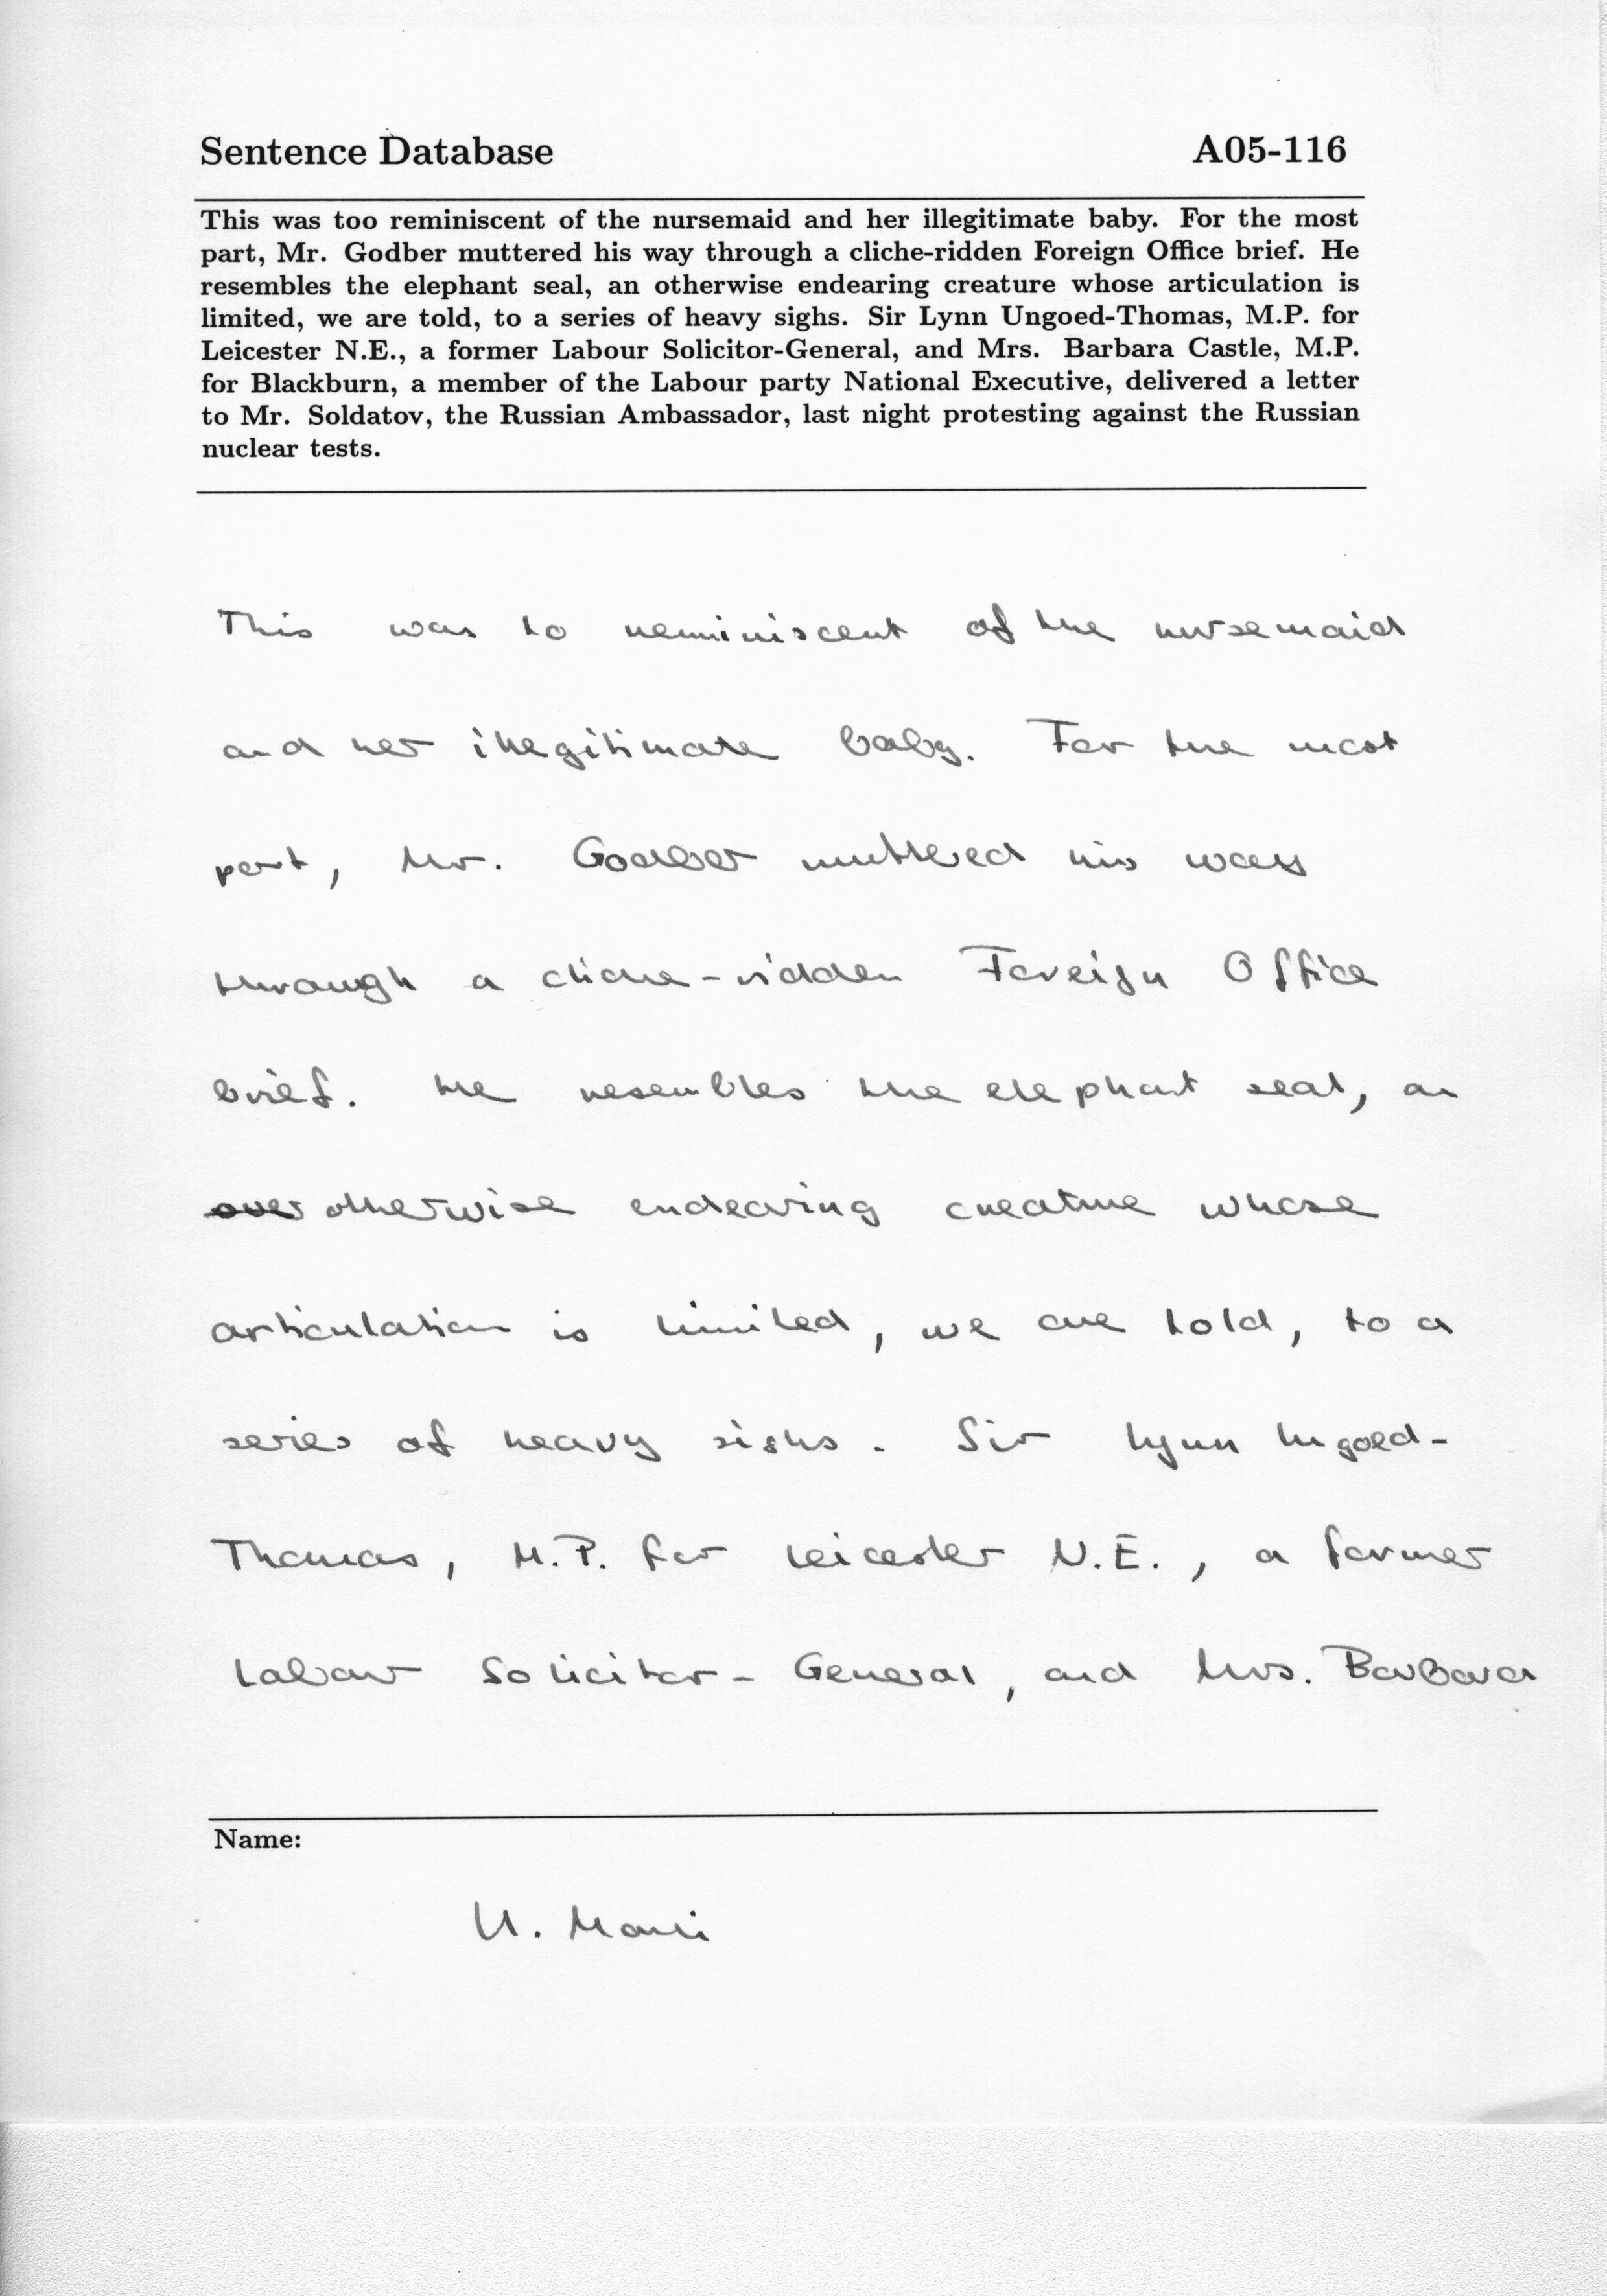 Sentence Database A05-116
This was too reminiscent of the nursemaid and her illegitimate baby. For the most
part, Mr. Godber muttered his way through a cliche-ridden Foreign Office brief. He
resembles the elephant seal, an otherwise endearing creature whose articulation is
limited, we are told, to a series of heavy sighs. Sir Lynn Ungoed-Thomas, M.P. for
Leicester N.E., a former Labour Solicitor-General, and Mrs. Barbara Castle, M.P.
for Blackburn, a member of the Labour party National Executive, delivered a letter
to Mr. Soldatov, the Russian Ambassador, last night protesting against the Russian
nuclear tests.
This was to reminiscent of the nursemaid
and her illegitimate baby. For the most
part, Mr. Godber muttered his way
through a cliche-ridden Foreign Office
brief. He resembles the elephant seal, an
otherwise endearing creature whose
articulation is limited, we are told, to a
series of heavy sighs. Sir Lynn Ungoed-
Thomas, M.P. for Leicester N.E., a former
Labour Solicitor-General, and Mrs. Barbara
Name:
U.